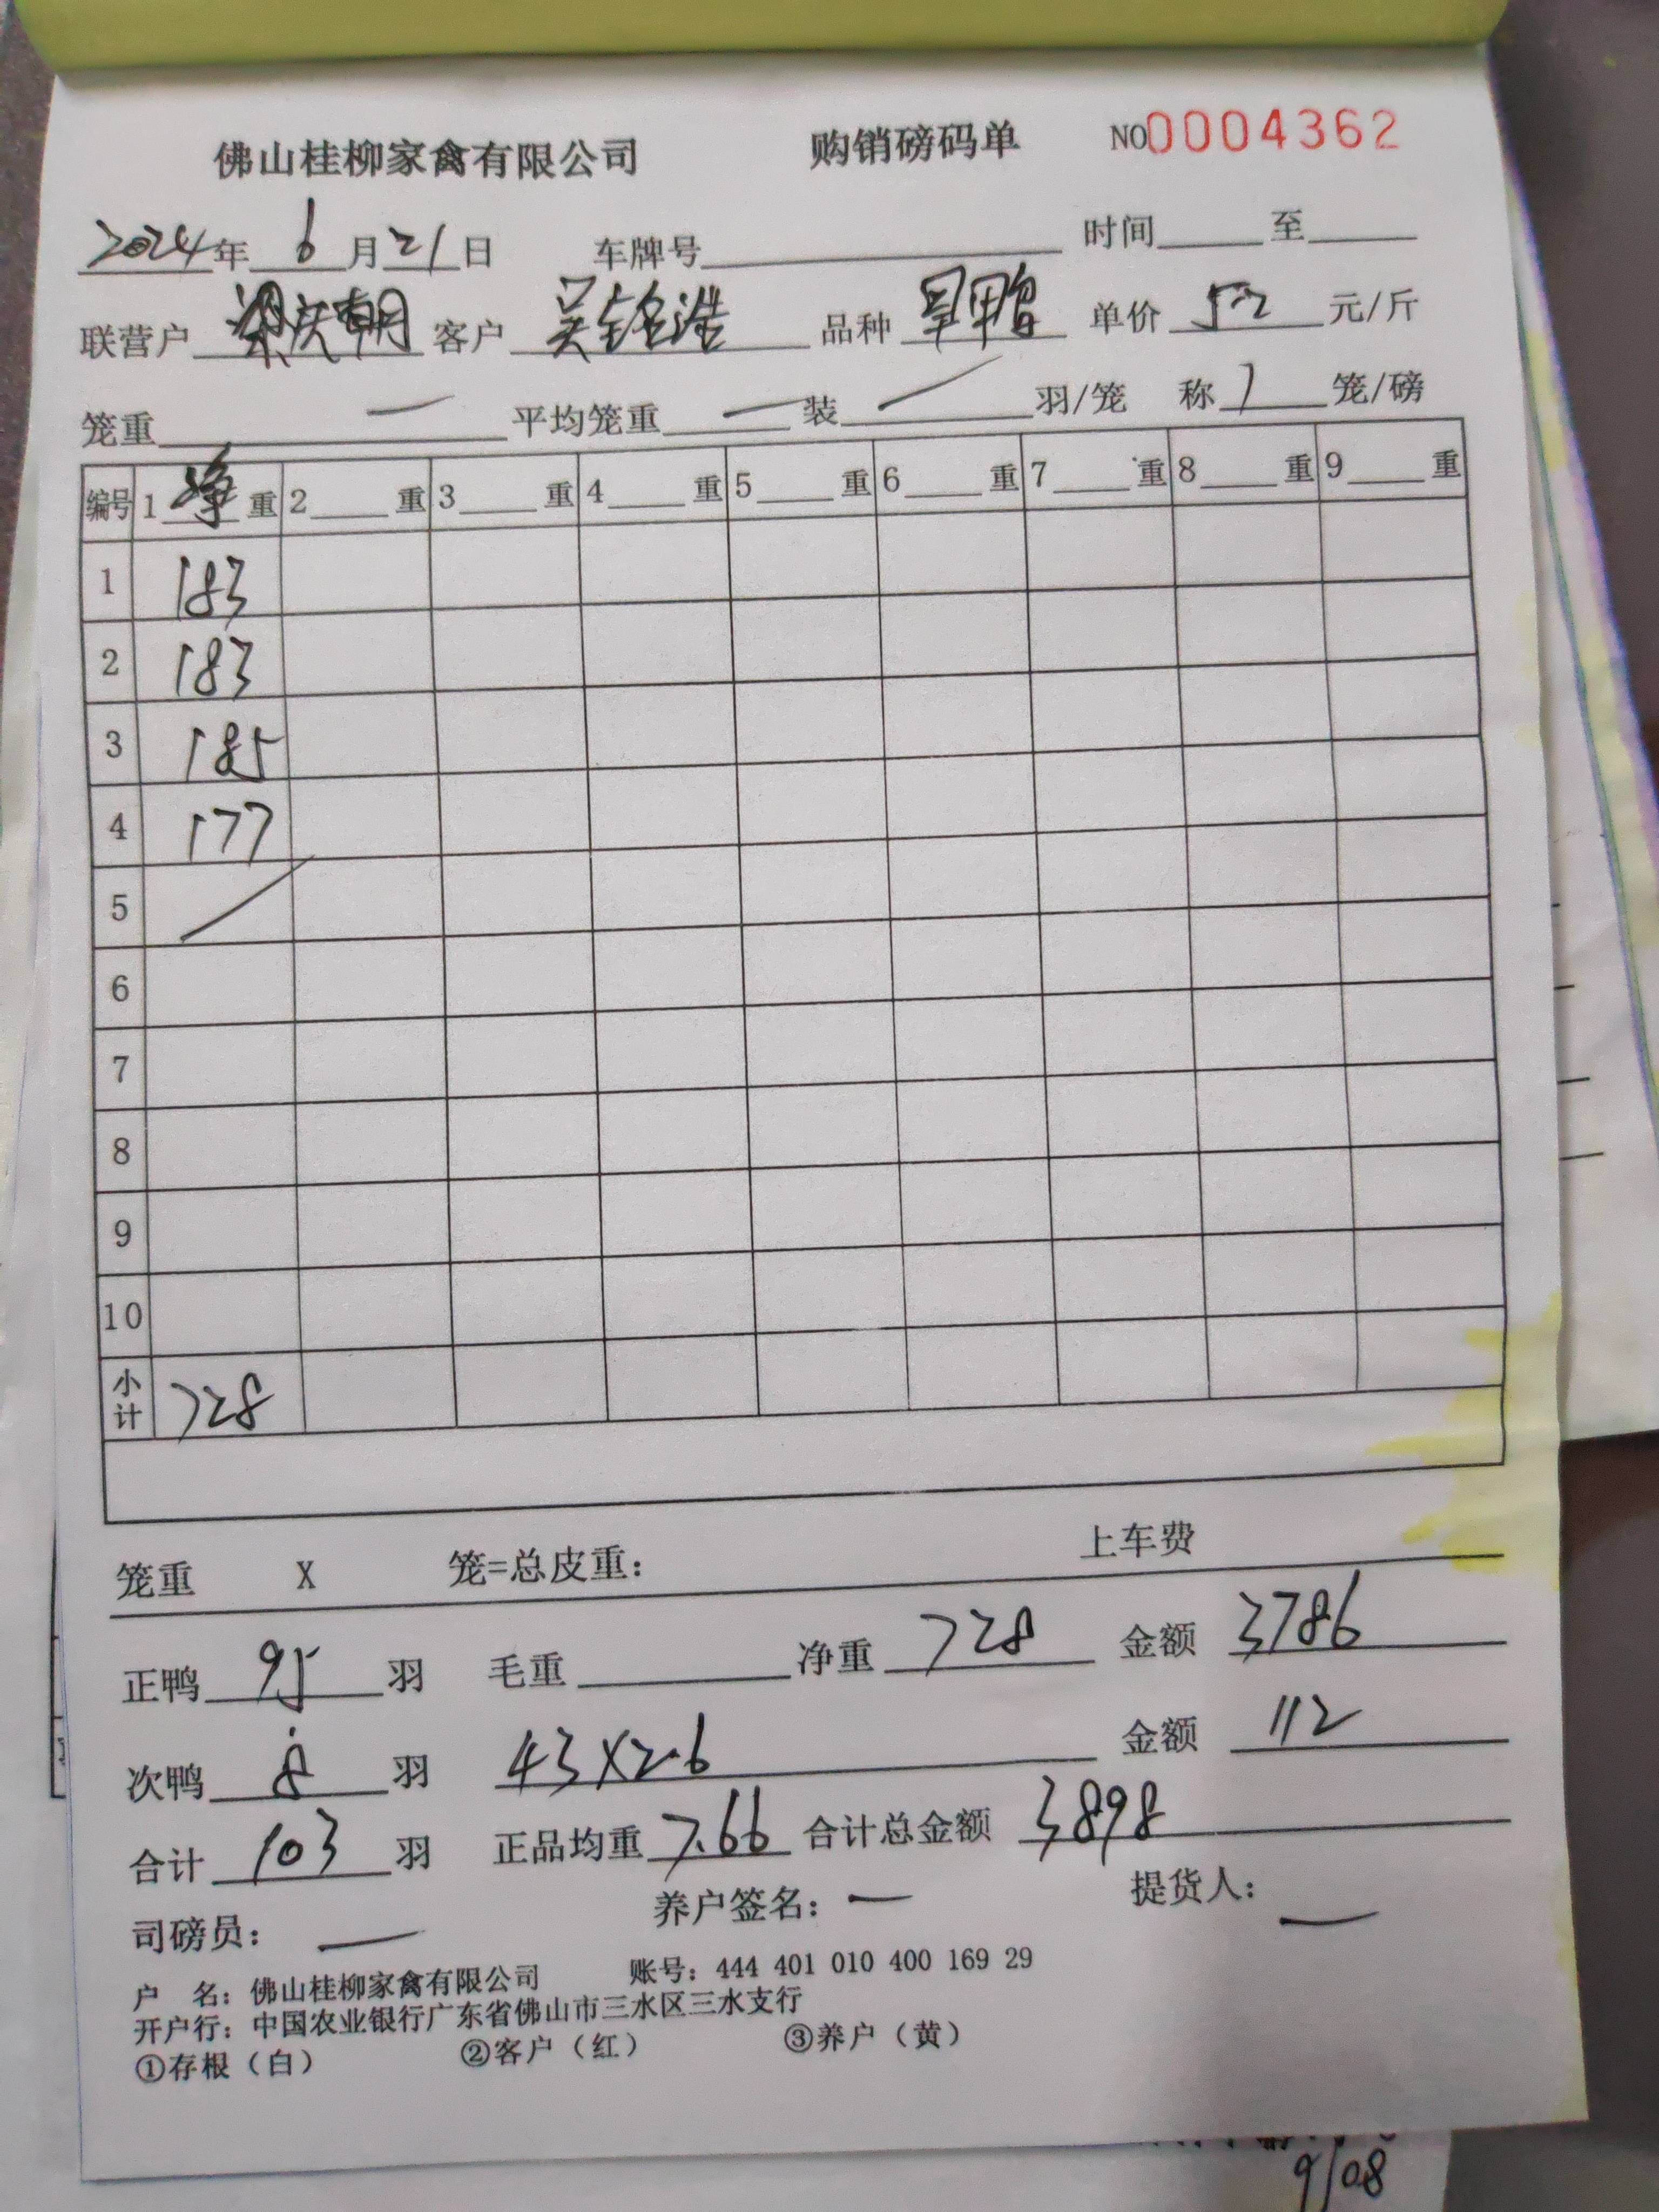 佛山桂柳家禽有限公司 购销磅码单 NO0004362
2024年 6月21日 车牌号 时间 至
联营户 梁庆朝 客户 吴铭浩 品种 旱鸭 单价 5.2 元/斤
笼重 — 平均笼重 — 装 / 羽/笼 称 1 笼/磅
编号 1 净 重 2 重 3 重 4 重 5 重 6 重 7 重 8 重 9 重
1 183
2 183
3 185
4 177
5 /
6
7
8
9
10
小计 728
笼重 X 笼=总皮重: 上车费
正鸭 95 羽 毛重 净重 728 金额 3786
次鸭 8 羽 43X2.6 金额 112
合计 103 羽 正品均重 7.66 合计总金额 3898
司磅员: — 养户签名: — 提货人: —
户 名: 佛山桂柳家禽有限公司 账号: 444 401 010 400 169 29
开户行: 中国农业银行广东省佛山市三水区三水支行
①存根（白） ②客户（红） ③养户（黄）
9/08